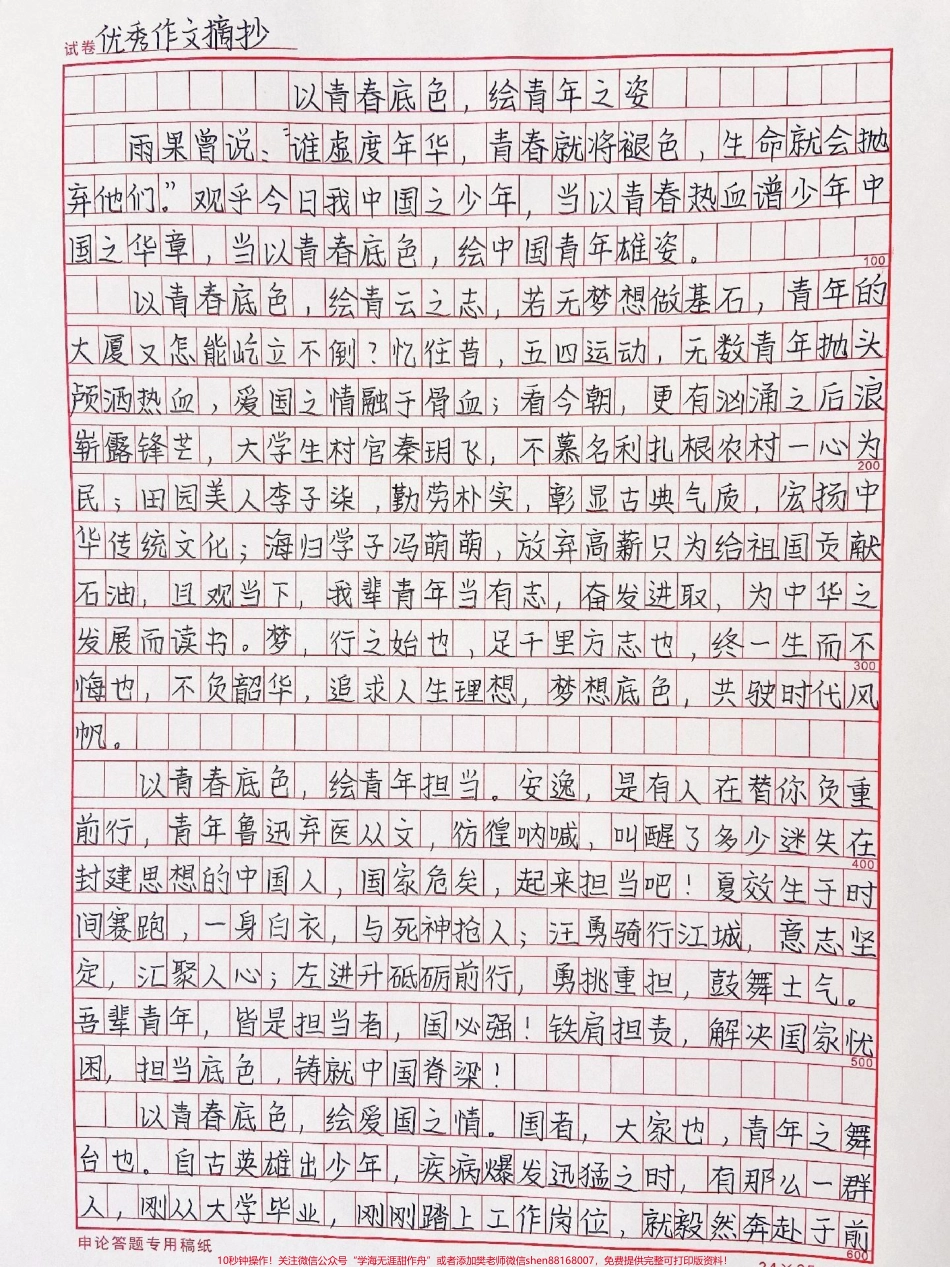 试卷 优秀作文摘抄
以青春底色，绘青年之姿
雨果曾说："谁虚度年华，青春就将褪色，生命就会抛
弃他们。"观乎今日我中国之少年，当以青春热血谱少年中
国之华章，当以青春底色，绘中国青年雄姿。
100
以青春底色，绘青云之志，若无梦想做基石，青年的
大厦又怎能屹立不倒？忆往昔，五四运动，无数青年抛头
颅洒热血，爱国之情融于骨血；看今朝，更有汹涌之后浪
崭露锋芒，大学生村官秦玥飞，不慕名利扎根农村一心为
200
民；田园美人李子柒，勤劳朴实，彰显古典气质，宏扬中
华传统文化；海归学子冯萌萌，放弃高薪只为给祖国贡献
石油，且观当下，我辈青年当有志，奋发进取，为中华之
发展而读书。梦，行之始也，足千里方志也，终一生而不
300
悔也，不负韶华，追求人生理想，梦想底色，共驶时代风
帆。
以青春底色，绘青年担当。安逸，是有人在替你负重
前行，青年鲁迅弃医从文，彷徨呐喊，叫醒了多少迷失在
400
封建思想的中国人，国家危矣，起来担当吧！夏效生于时
间赛跑，一身白衣，与死神抢人；汪勇骑行江城，意志坚
定，汇聚人心；左进升砥砺前行，勇挑重担，鼓舞士气。
吾辈青年，皆是担当者，国必强！铁肩担责，解决国家忧
500
困，担当底色，铸就中国脊梁！
以青春底色，绘爱国之情。国者，大家也，青年之舞
台也。自古英雄出少年，疾病爆发迅猛之时，有那么一群
人，刚从大学毕业，刚刚踏上工作岗位，就毅然奔赴于前
600
申论答题专用稿纸
10秒钟操作！关注微信公众号"学海无涯甜作舟"或者添加樊老师微信shen88168007，免费提供完整可打印版资料！